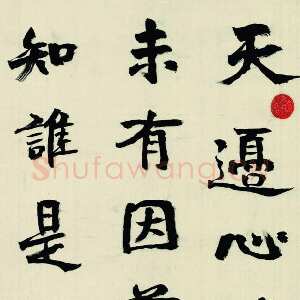 天邊心
未有因
知誰是
Shufawang